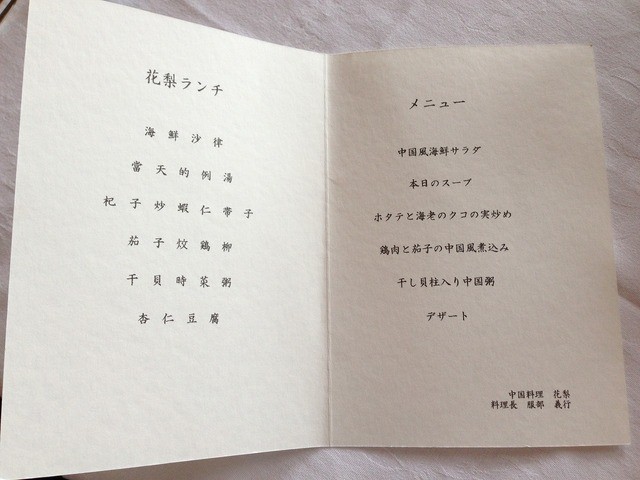 花梨ランチ
海鮮沙律
當天的例湯
杞子炒蝦仁帯子
茄子炆鶏柳
干貝時菜粥
杏仁豆腐
メニュー
中国風海鮮サラダ
本日のスープ
ホタテと海老のクコの実炒め
鶏肉と茄子の中国風煮込み
干し貝柱入り中国粥
デザート
中国料理 花梨
料理長 服部 義行